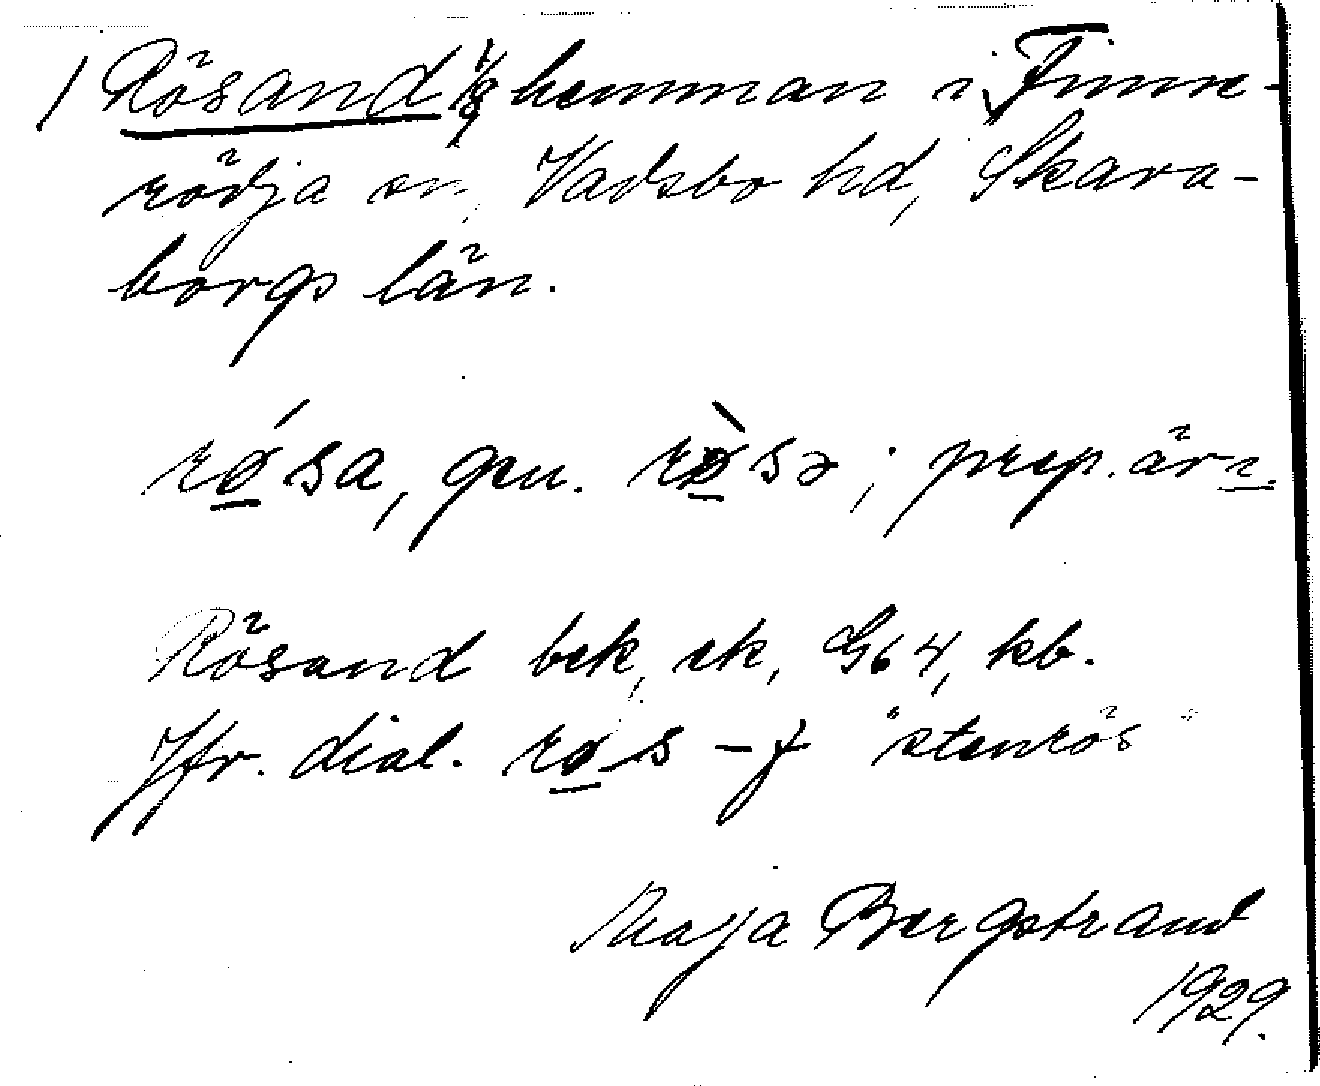 1 Rösand 1/8 hemman i Finne-
rödja sn, Vadsbo hd, Skara-
borgs län.
rǿsa, gen. rø̀sə; prep. är i.
Rösand bek, ek, G64, kb.
Jfr. dial. røs -f "stenrös"
Maja Bergstrand
1929.